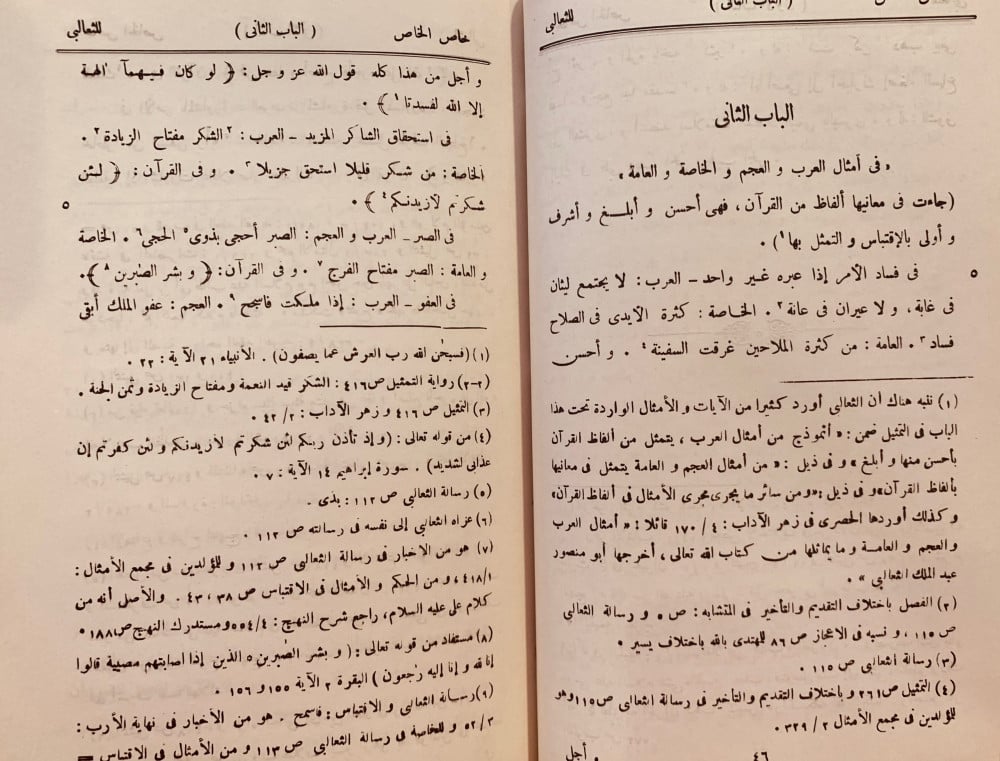 ( الباب الثانى )
للثعالبى
الباب الثانى
« فى أمثال العرب و العجم و الخاصة و العامة »
(جاءت فى معانيها ألفاظ من القرآن ، فهى أحسن و أبلغ و أشرف
و أولى بالإقتباس و التمثل بها ١) .
فى فساد الأمر إذا عبره غير واحد – العرب : لا يجتمع ليثان
٥
فى غابة ، و لا عيران فى عانة ٢ . الخاصة : كثرة الأيدى فى الصلاح
فساد ٣ . العامة : من كثرة الملاحين غرقت السفينة ٤ . و أحسن
(١) نلبه هناك أن الثعالبى أورد كثيرا من الآيات و الأمثال الواردة تحت هذا
الباب فى التمثيل ضمن : « أنموذج من أمثال العرب ، يتمثل من ألفاظ القرآن
بأحسن منها و أبلغ » و فى ذيل : « من أمثال العجم و العامة يتمثل فى معانيها
بألفاظ القرآن » و فى ذيل : « ومن سائر ما يجرى مجرى الأمثال فى ألفاظ القرآن »
و كذلك أوردها الحصرى فى زهر الآداب : ٤ / ١٧٠ قائلا : « أمثال العرب
والعجم و العامة و ما يماثلها من كتاب الله تعالى ، أخرجها أبو منصور
عبد الملك الثعالبي » .
(٢) الفصل باختلاف التقديم والتأخير فى المتشابه : ص ٥ و رسالة الثعالبى
ص ١١٥ ، و نسبه فى الاعجاز ص ٨٦ للهندى بالله باختلاف يسير .
(٣) رسالة الثعالبى ص ١١٥ .
(٤) التمثيل ص ٢٦١ و باختلاف التقديم والتأخير فى رسالة الثعالبى ص ١١٥ وهو
للؤلدين فى مجمع الأمثال ٢ / ٣٢٩ .
٤٦
و أجل
خاص الخاص
( الباب الثانى )
للثعالبى
و أجل من هذا كله قول الله عز و جل : ﴿ لو كان فيهمآ الهة
إلا الله لفسدتا ١ ﴾ .
فى استحقاق الشاكر المزيد – العرب : ٢ الشكر مفتاح الزيادة ٢ .
الخاصة : من شكر قليلا استحق جزيلا ٣ . و فى القرآن : ﴿ لئن
شكرتم لأزيدنكم ٤ ﴾ .
٥
فى الصبر – العرب و العجم : الصبر أحجى بذوى ٥ الحجى ٦ . الخاصة
و العامة : الصبر مفتاح الفرج ٧ . و فى القرآن : ﴿ و بشر الصٰبرين ٨ ﴾ .
فى العفو – العرب : إذا ملكت فاسجح ٩ . العجم : عفو الملك أبقى
(١) (فسبحٰن الله رب العرش عما يصفون) . الأنبياء ٢١ الآية : ٢٢ .
(٢-٢) رواية التمثيل ص ٤١٦ : الشكر قيد النعمة ومفتاح الزيادة وثمن الجنة .
(٣) التمثيل ص ٤١٦ و زهر الآداب : ٢ / ٤٢ .
(٤) من قوله تعالى : (و إذ تأذن ربكم لئن شكرتم لأزيدنكم و لئن كفرتم إن
عذابى لشديد) . سورة إبراهيم ١٤ الآية : ٧ .
(٥) رسالة الثعالبي ص ١١٢ : بذى .
(٦) عزاه الثعالبى إلى نفسه فى رسالته ص ١١٢ .
(٧) هو من الاخبار فى رسالة الثعالبى ص ١١٢ و للؤلدين فى مجمع الأمثال :
٤١٨/١ ، و من الحكم و الأمثال فى الاقتباس ص ٣٨ ، ٤٣ . والأصلى أنه من
كلام على عليه السلام ، راجع شرح النهج : ٥٥٤/٤ ومستدرك النهج ص ١٨٨ .
(٨) مستفاد من قوله تعالى : ( و بشر الصٰبرين ٥ الذين إذا اصابتهم مصيبة قالوا
إنا لله و إنا إليه رٰجعون ) البقرة ٢ الآية ١٥٥ و ١٥٦ .
(٩) رسالة الثعالبى و الاقتباس : فاسمح . هو من الأخبار فى نهاية الأرب :
٥٢/٣ و للخاصة فى رسالة الثعالبى ص ١١٣ و من الأمثال فى الاقتباس =